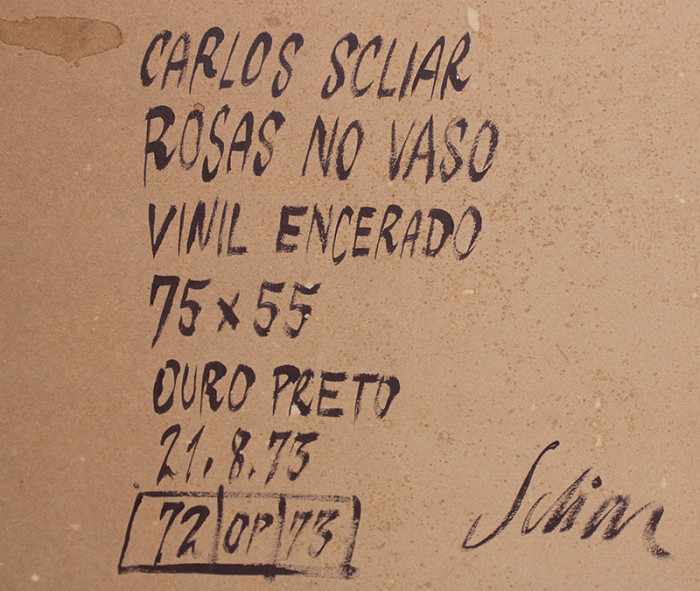 CARLOS SCLIAR
ROSAS NO VASO
VINIL ENCERADO
75 x 55
OURO PRETO
21.8.73
72 OP 73
Scliar